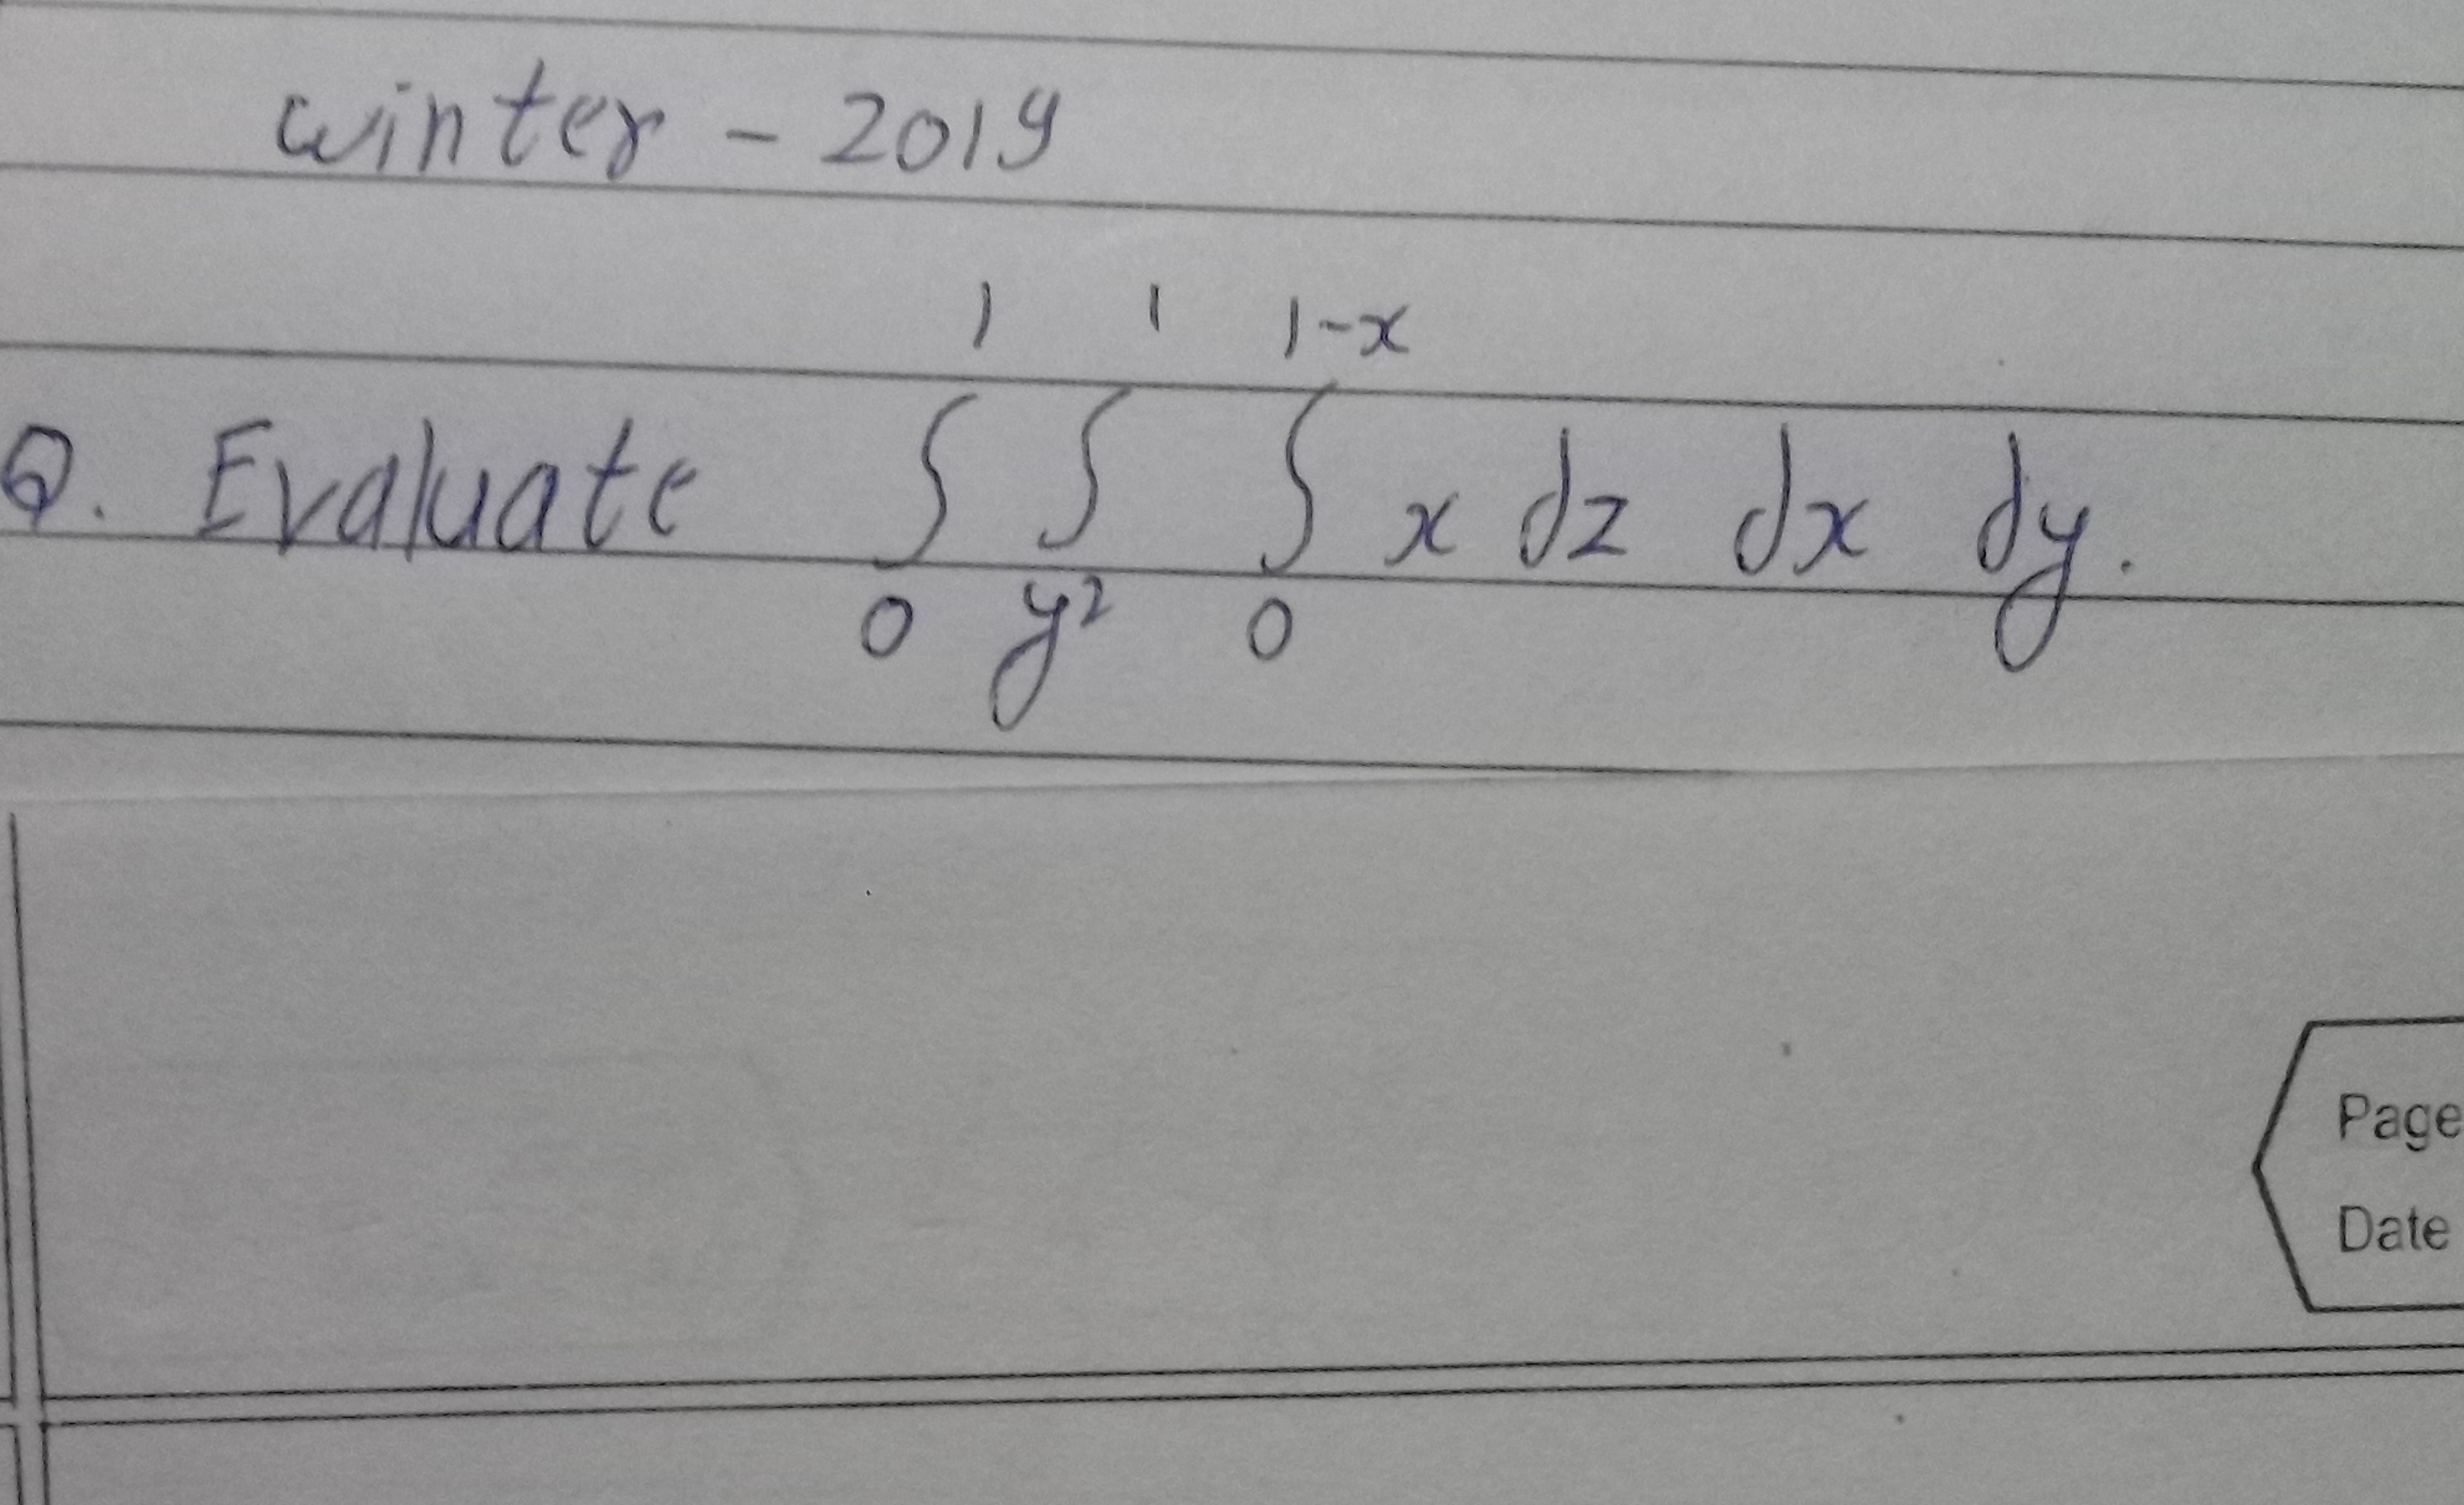 winter - 2019
Q. Evaluate ∫₀¹ ∫_{y²}¹ ∫₀^{1-x} x dz dx dy.
Page
Date